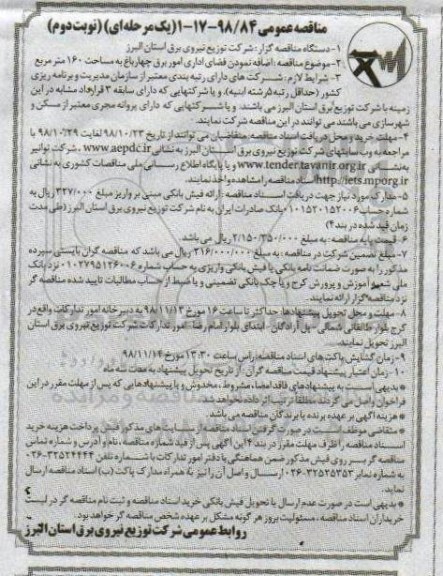 مناقصه عمومی ۹۸/۸۴-۱۷-۱(یک مرحله‌ای) (نوبت دوم)
۱-دستگاه مناقصه گزار: شرکت توزیع نیروی برق استان البرز
۲-موضوع مناقصه: اضافه نمودن فضای اداری امور برق چهارباغ به مساحت ۱۶۰ متر مربع
۳- شرایط لازم: شرکت های دارای رتبه بندی معتبر از سازمان مدیریت و برنامه ریزی
کشور (حداقل رتبه ۵ رشته ابنیه)، و یا شرکتهایی که دارای سابقه ۳ قرارداد مشابه در این
زمینه با شرکت توزیع برق استان البرز می باشند، و یا شرکتهایی که دارای پروانه مجری معتبر از مسکن و
شهرسازی می باشند می توانند در این مناقصه شرکت نمایند.
۴-مهلت خرید و محل دریافت اسناد مناقصه: متقاضیان می توانند از تاریخ ۹۸/۱۰/۲۳ لغایت ۹۸/۱۰/۲۹ با
مراجعه به وب سایتهای شرکت توزیع نیروی برق استان البرز به نشانی www.aepdc.ir، شرکت توانیر
به نشانی www.tender.tavanir.org.ir و یا پایگاه اطلاع رسانی ملی مناقصات کشوری به نشانی
http://iets.mporg.ir اسناد مناقصه را مشاهده و اخذ نمایند.
۵-مدارک مورد نیاز جهت دریافت اسناد مناقصه: ارائه فیش بانکی مبنی بر واریز مبلغ ۳۲۷/۰۰۰ ریال به
شماره حساب ۰۱۰۱۵۲۰۱۵۲۰۰۶ بانک صادرات ایران به نام شرکت توزیع نیروی برق استان البرز (طی مدت
زمان قید شده در بند ۴)
۶-قیمت پایه مناقصه: به مبلغ ۲/۱۵۰/۳۵۰/۰۰۰ ریال می باشد.
۷-مبلغ تضمین شرکت در مناقصه: به مبلغ ۲۱۶/۰۰۰/۰۰۰ ریال می باشد که مناقصه گران بایستی سپرده
مذکور را به صورت ضمانت نامه بانکی یا فیش بانکی واریزی به حساب شماره ۰۱۰۲۷۹۵۱۲۶۰۰۶ نزد بانک
ملی شعبه آموزش و پرورش کرج و یا چک بانکی تضمینی و یا ضبط از حساب مطالبات تایید شده مناقصه گر
نزد مناقصه گزار ارائه نمایند.
۸-مهلت و محل تحویل پیشنهادها: حداکثر تا ساعت ۱۶ مورخ ۹۸/۱۱/۱۳ به دبیرخانه امور تدارکات واقع در
کرج بلوار طالقانی شمالی - پل آزادگان - ابتدای بلوار امام رضا - امور تدارکات شرکت توزیع نیروی برق استان
البرز تحویل نمایند.
۹-زمان گشایش پاکت های اسناد مناقصه: راس ساعت ۱۳:۳۰ مورخ ۹۸/۱۱/۱۴
۱۰- زمان اعتبار پیشنهاد قیمت مناقصه گران: از تاریخ تحویل پیشنهاد به مدت سه ماه
* بدیهی است به پیشنهادهای فاقد امضا، مشروط، مخدوش و یا پیشنهادهایی که پس از مهلت مقرر در این
فراخوان واصل می گردد مطلقا ترتیب اثر داده نخواهد شد
* هزینه آگهی بر عهده برنده یا برندگان مناقصه می باشد
* متقاضی موظف است در صورت گرفتن اسناد مناقصه از سایت های مذکور فیش پرداخت هزینه خرید
اسناد مناقصه را ظرف مهلت مقرر در بند ۴ این آگهی پس از قید شماره مناقصه، نام و آدرس و شماره تماس
مناقصه گر بر روی فیش مذکور ضمن هماهنگی با دفتر امور تدارکات با شماره تلفن ۳۲۵۲۴۴۴۴-۰۲۶
به شماره نمابر ۳۲۵۲۵۳۵۳-۰۲۶ ارسال و اصل آن را نیز به همراه مدارک پاکت (ب) اسناد مناقصه ارسال
نماید.
* بدیهی است در صورت عدم ارسال یا تحویل فیش بانکی خرید اسناد مناقصه و ثبت نام مناقصه گر در لیست
خریداران اسناد مناقصه، مسئولیت بروز هر گونه مشکل بر عهده شخص مناقصه گر خواهد بود.
روابط عمومی شرکت توزیع نیروی برق استان البرز